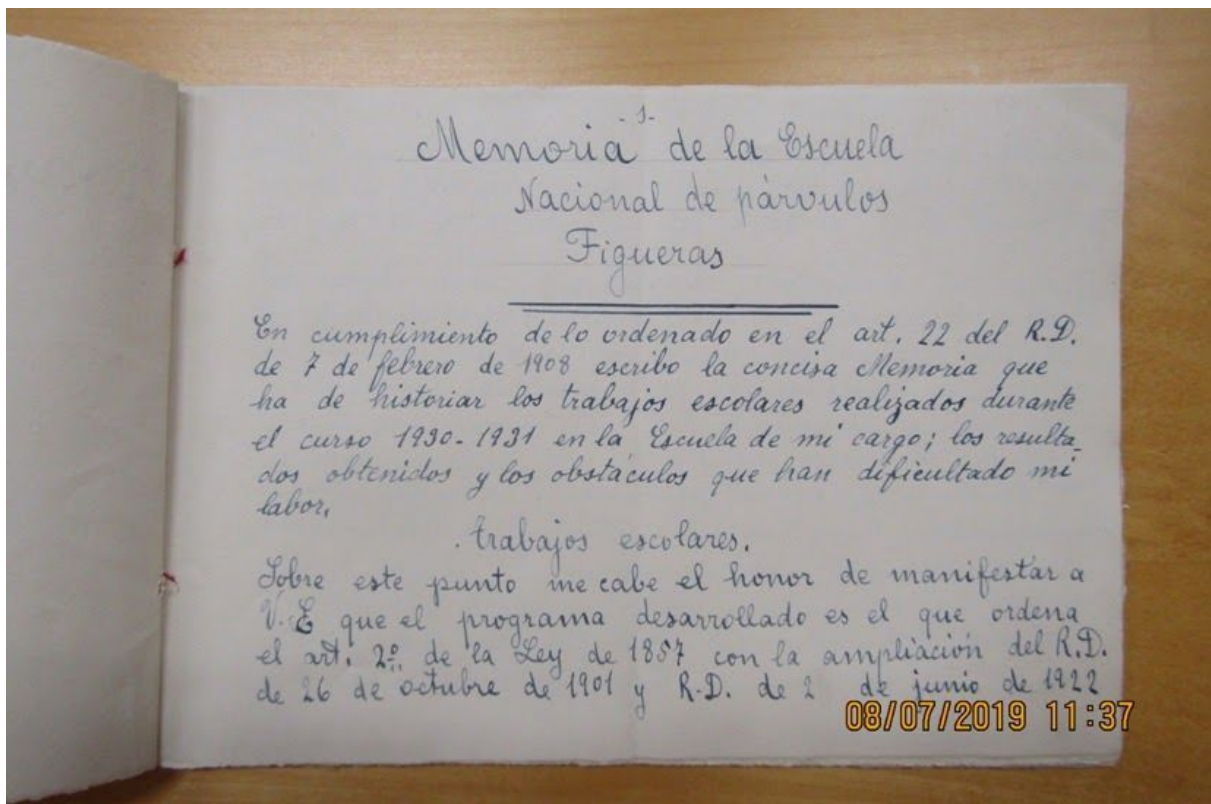 - 1 -
Memoria de la Escuela
Nacional de párvulos
Figueras
En cumplimiento de lo ordenado en el art. 22 del R.D.
de 7 de febrero de 1908 escribo la concisa Memoria que
ha de historiar los trabajos escolares realizados durante
el curso 1930-1931 en la Escuela de mi cargo; los resulta-
dos obtenidos y los obstáculos que han dificultado mi
labor.
. trabajos escolares.
Sobre este punto me cabe el honor de manifestar a
V. E que el programa desarrollado es el que ordena
el art. 2º de la Ley de 1857 con la ampliación del R.D.
de 26 de octubre de 1901 y R.D. de 2 de junio de 1922
08/07/2019 11:37